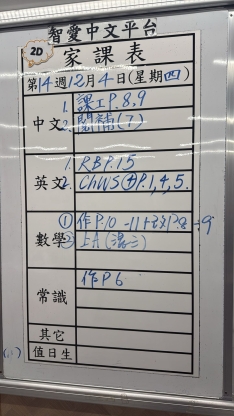 智愛中文平台
2D
家課表
第14週12月4日(星期四)
中文
1. 課工P.8,9
2. 閱補(7)
英文
1. RBP.15
2. ChWS④P.1,4,5.
數學
① 作P.10-11+改P.8-9
②
常識
作P6
其它
值日生